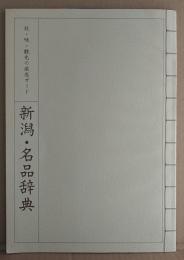 技・味・観光の厳選ガイド
新潟・名品辞典